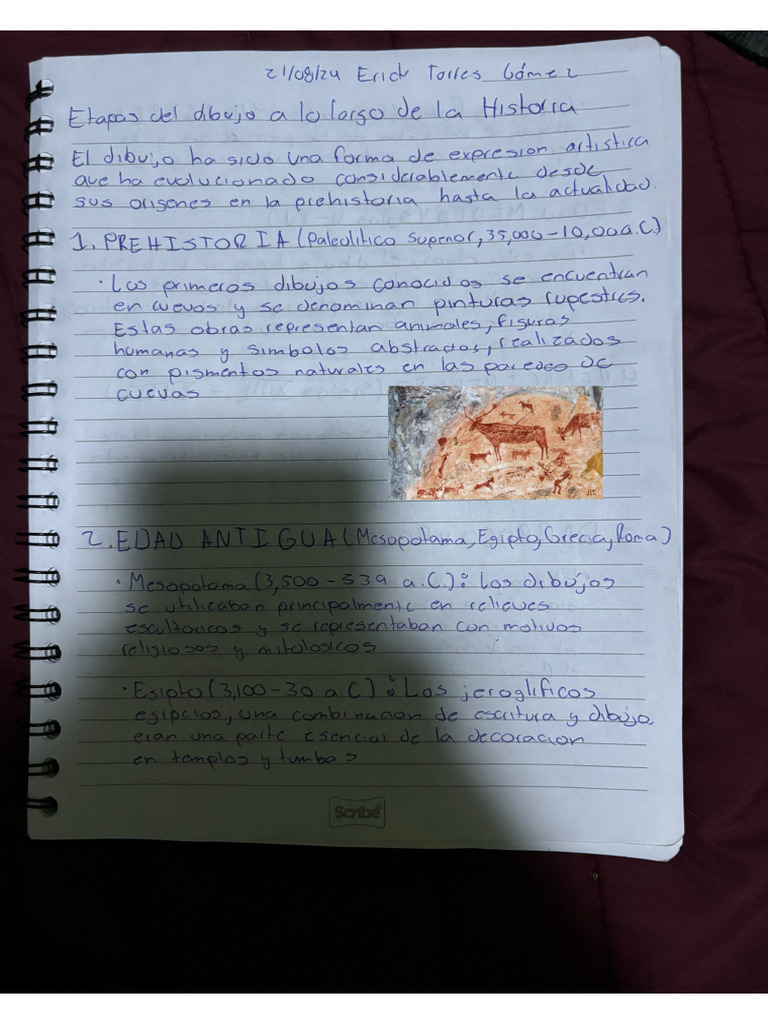 21/08/24 Erick Torres Gómez
Etapas del dibujo a lo largo de la Historia
El dibujo ha sido una forma de expresion artistica
que ha evolucionado considerablemente desde
sus origenes en la prehistoria hasta la actualidad.
1. PREHISTORIA (Paleolitico Superior, 35,000-10,00 a.C.)
· Los primeros dibujos conocidos se encuentran
en cuevos y se denominan pinturas rupestres.
Estas obras representan animales, figuras
humanas y simbolos abstractos, realizados
con pigmentos naturales en las paredes de
cuevas
2. EDAD ANTIGUA (Mesopotamia, Egipto, Grecia, Roma)
· Mesopotamia (3,500-539 a.C.): Los dibujos
se utilizaban principalmente en relieves
escultoricos y se representaban con motivos
religiosos y mitologicos
· Egipto (3,100-30 a C): Los jeroglificos
egipcios, una combinacion de escritura y dibujo,
eran una parte esencial de la decoracion
en templos y tumbas
Scribe